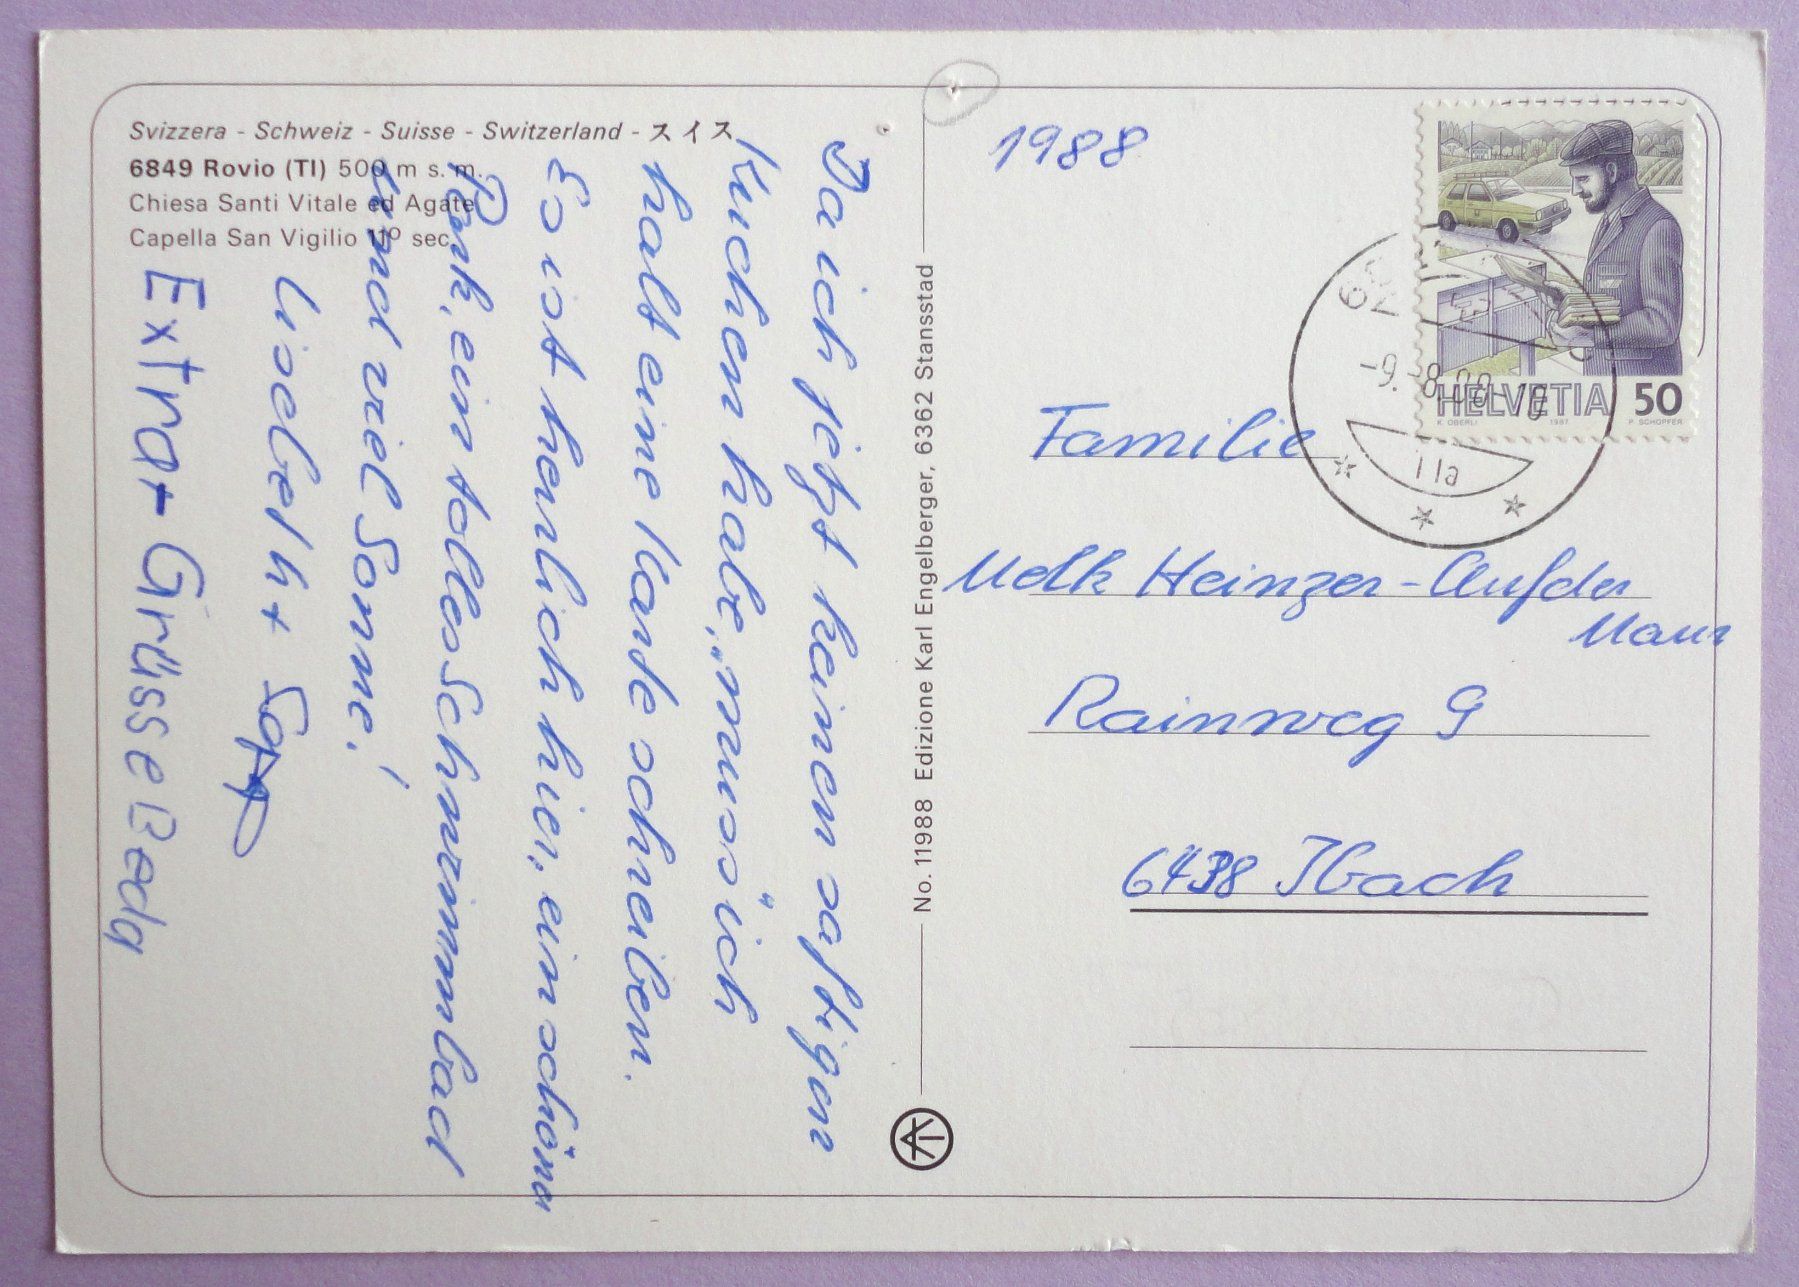 Svizzera - Schweiz - Suisse - Switzerland - スイス
6849 Rovio (TI) 500 m s. m.
Chiesa Santi Vitale ed Agate
Capella San Vigilio 11º sec.
Da ich jetzt keinen saftigen
Kuchen habe, „muss" ich
halt eine Karte schreiben.
Es ist herrlich hier, ein schöner
Park, ein tolles Schwimmbad
und viel Sonne!
Liebelht
Extra-Grüsse Beda
No. 11988 Edizione Karl Engelberger, 6362 Stansstad
1988
HELVETIA 50
K. OBERLI 1987 P. SCHOPFER
-9.-8.88-18
Familie
Melk Heinzer-Aufder
Maur
Rainweg 9
6438 Ibach